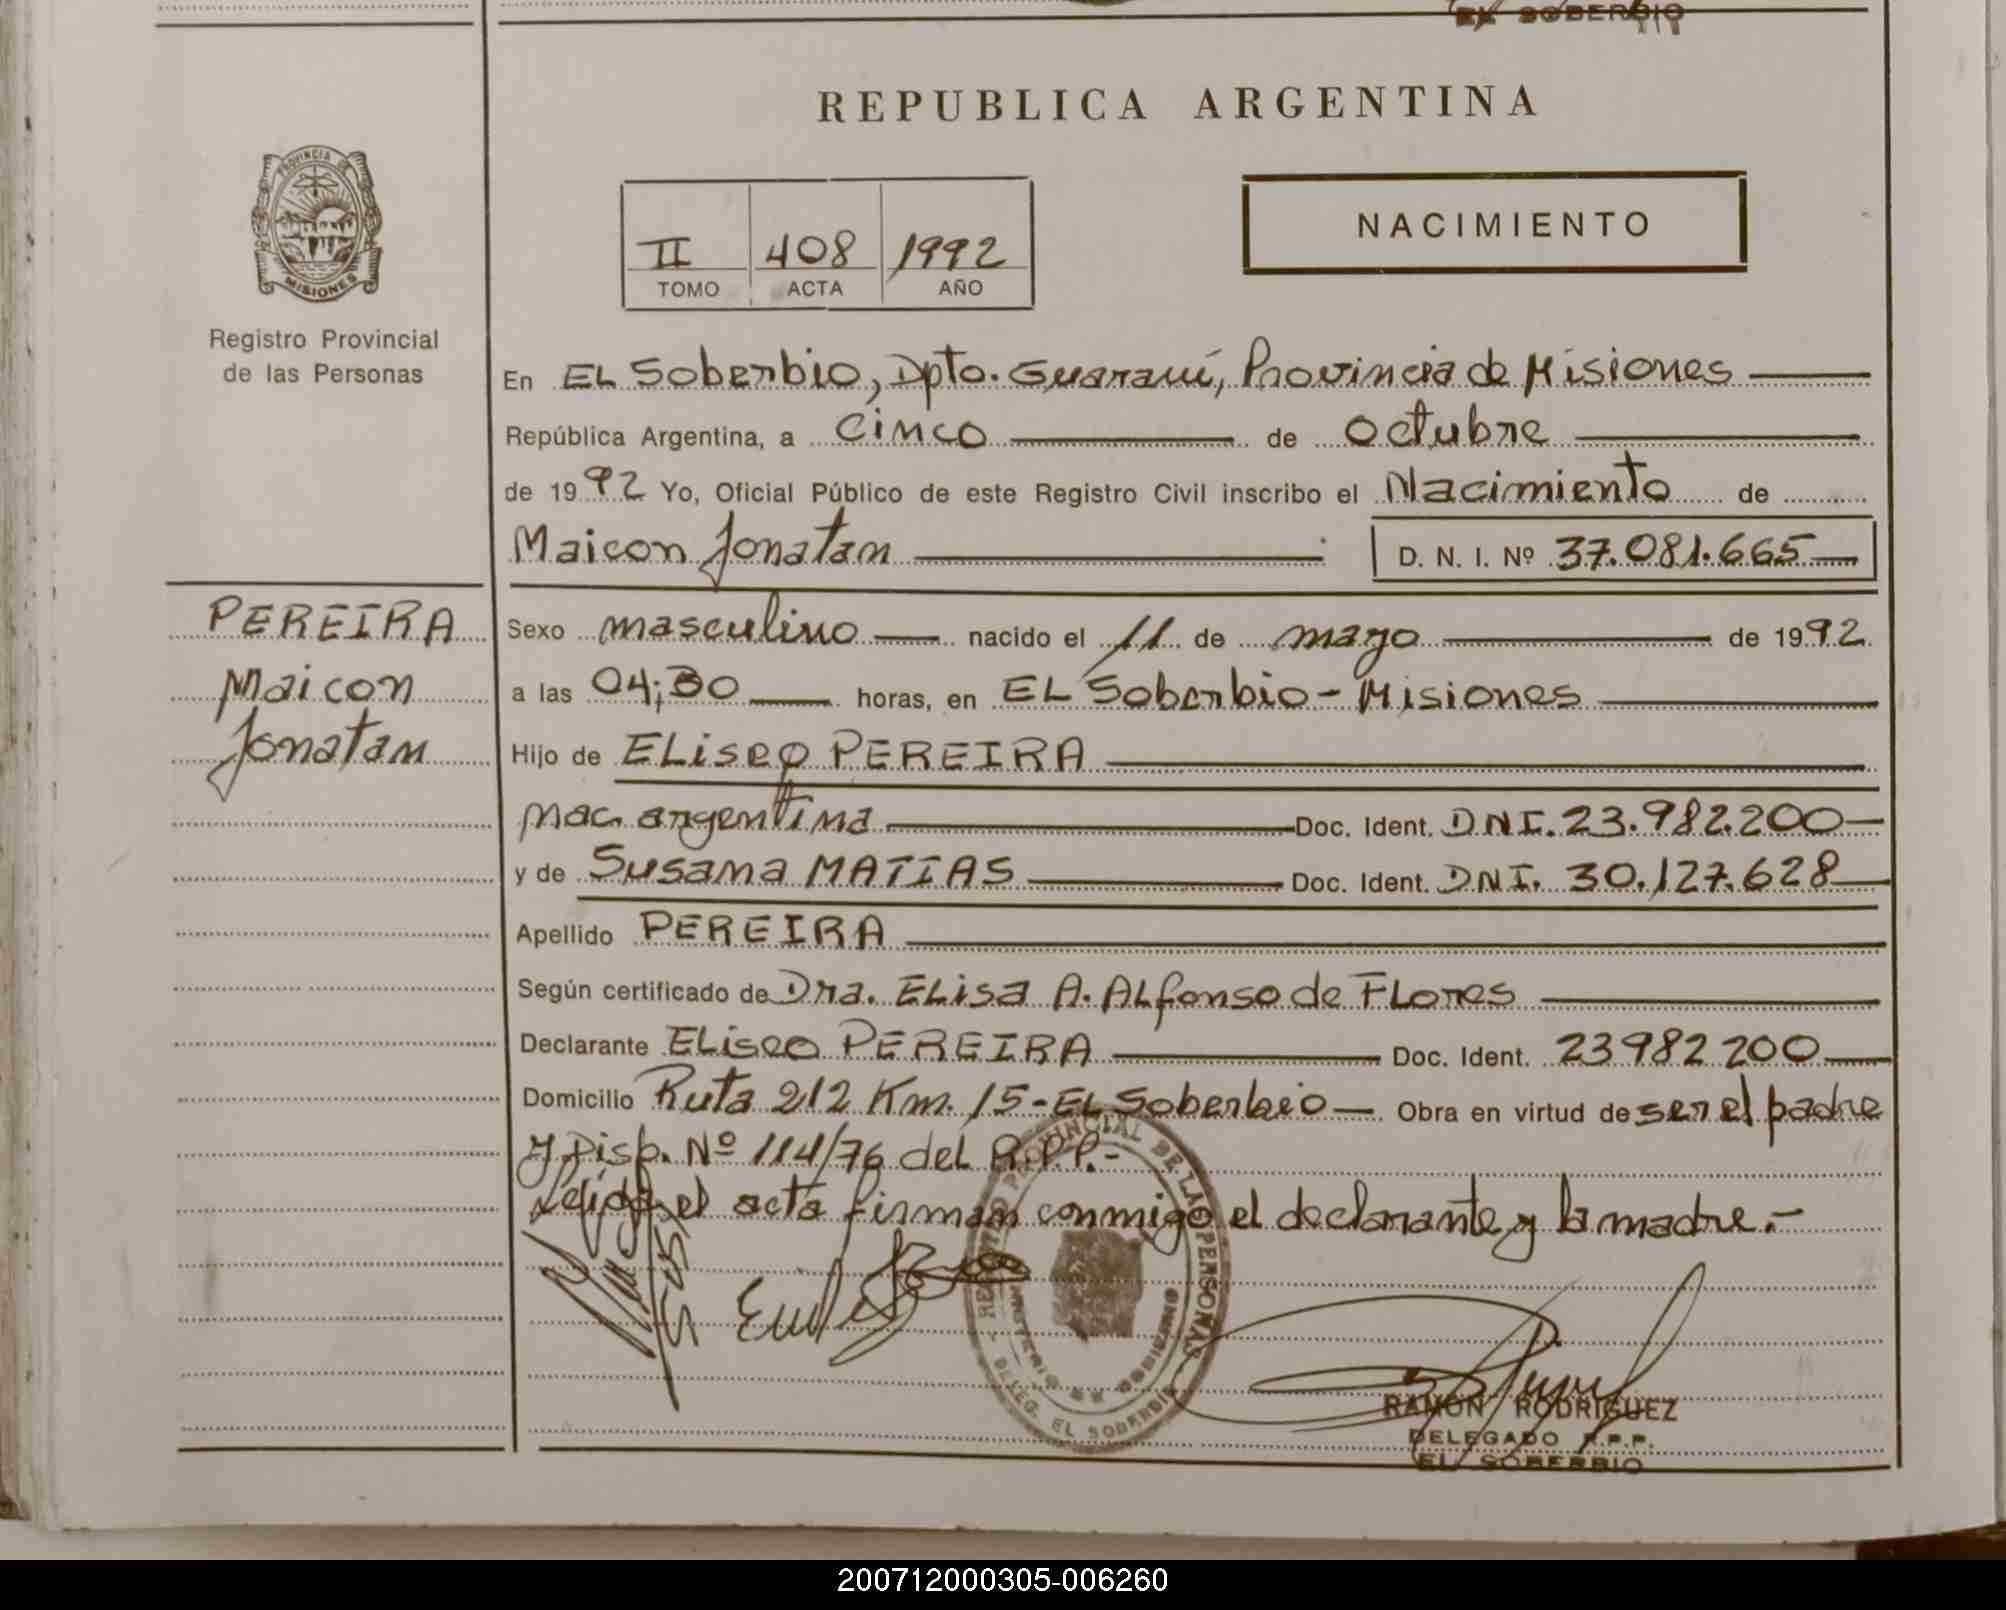 EL SOBERBIO
REPUBLICA ARGENTINA
PROVINCIA DE
MISIONES
Registro Provincial
de las Personas
II 408 1992
TOMO ACTA AÑO
NACIMIENTO
En EL Soberbio, Dpto. Guaraní, Provincia de Misiones
República Argentina, a cinco de octubre
de 1992 Yo, Oficial Público de este Registro Civil inscribo el Nacimiento de
Maicon Jonatan D. N. I. Nº 37.081.665
PEREIRA
Maicon
Jonatan
Sexo masculino nacido el 11 de mayo de 1992.
a las 04;30 horas, en EL Soberbio - Misiones
Hijo de ELiseo PEREIRA
nac. argentina Doc. Ident. DNI. 23.982.200
y de Susana MATIAS Doc. Ident. DNI. 30.127.628
Apellido PEREIRA
Según certificado de Dra. ELisa A. ALfonso de FLores
Declarante ELiseo PEREIRA Doc. Ident. 23982200
Domicilio Ruta 212 Km. 15 - EL Soberbio Obra en virtud de ser el padre
y Disp. Nº 114/76 del R.P.P.-
Leída el acta firman conmigo el declarante y la madre.-
REGISTRO PROVINCIAL DE LAS PERSONAS
MINISTERIO DE GOBIERNO
DELEG. EL SOBERBIO
RAMON RODRIGUEZ
DELEGADO R.P.P.
EL SOBERBIO
200712000305-006260